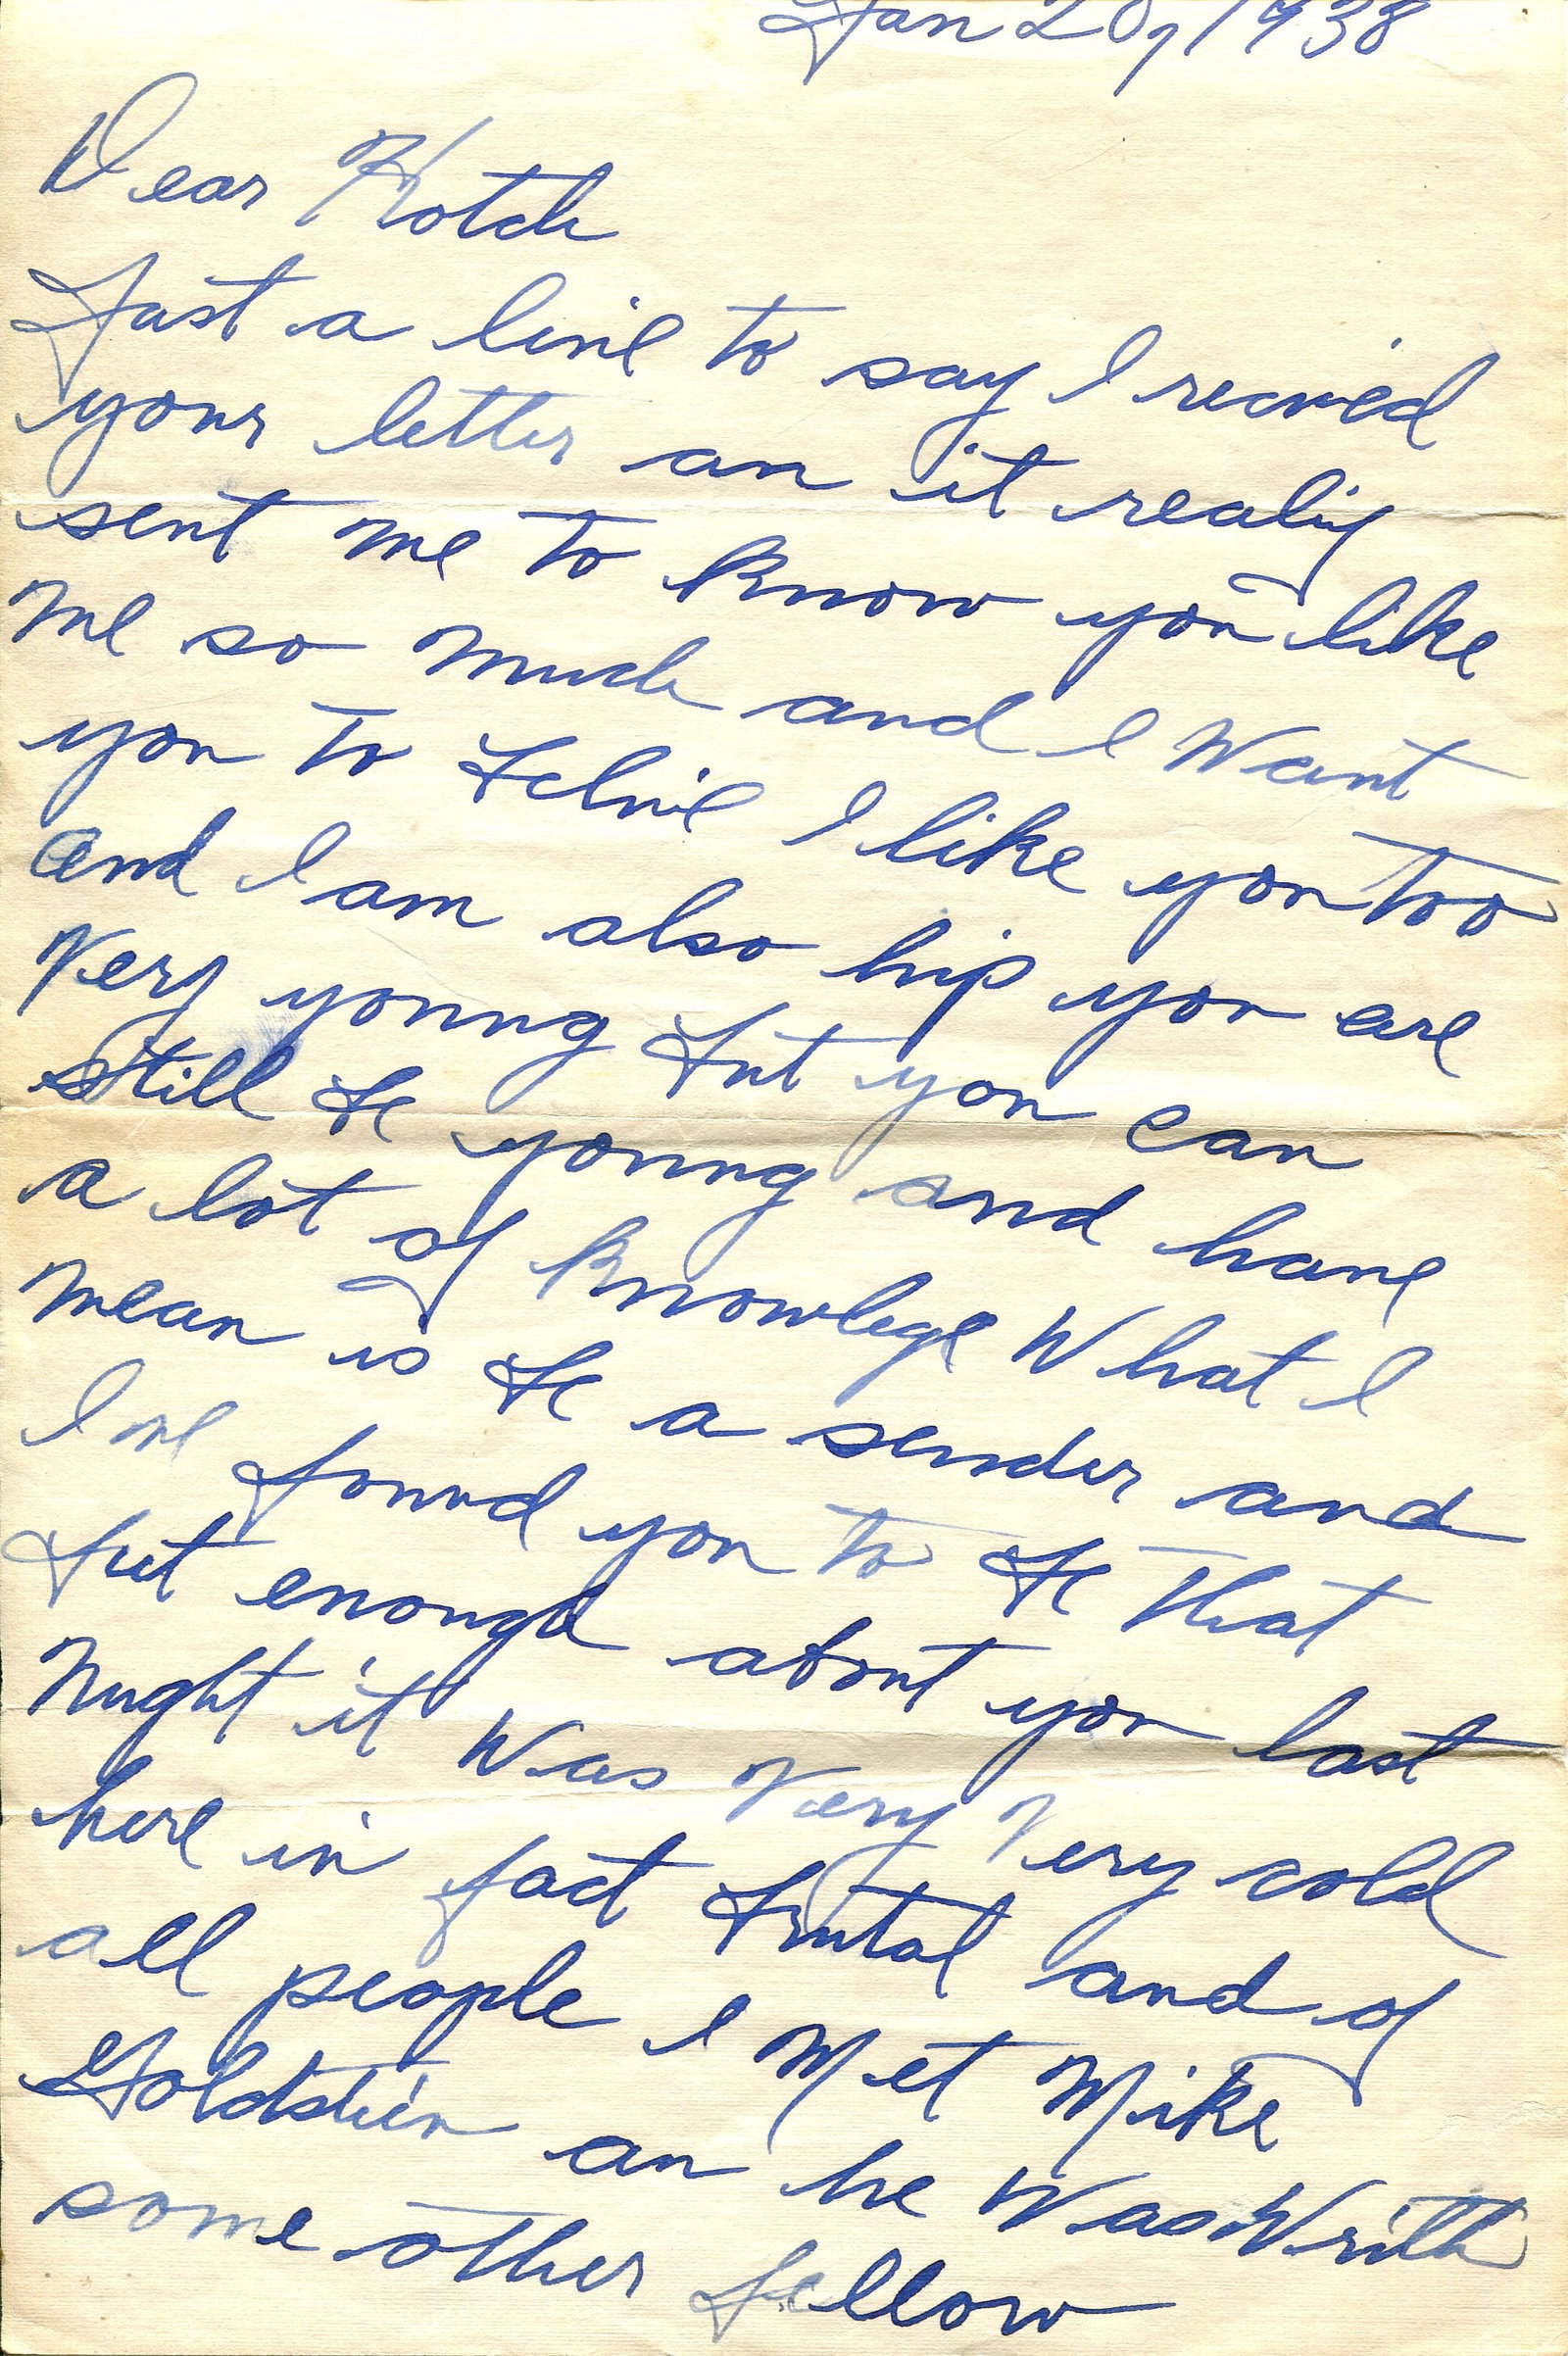 Jan 20, 1938
Dear Hotch
Just a line to say I recived
your letter an it really
sent me to know you like
me so much and I Want
you to Belive I like you too
and I am also hip you are
Very young But you can
still Be young and have
a lot of Knowlege What I
mean is Be a sender and
I've found you to Be that
But enough about you last
Night it Was Very Very cold
here in fact Brutal and of
all people I Met Mike
Goldstein an he Was With
some other fellow